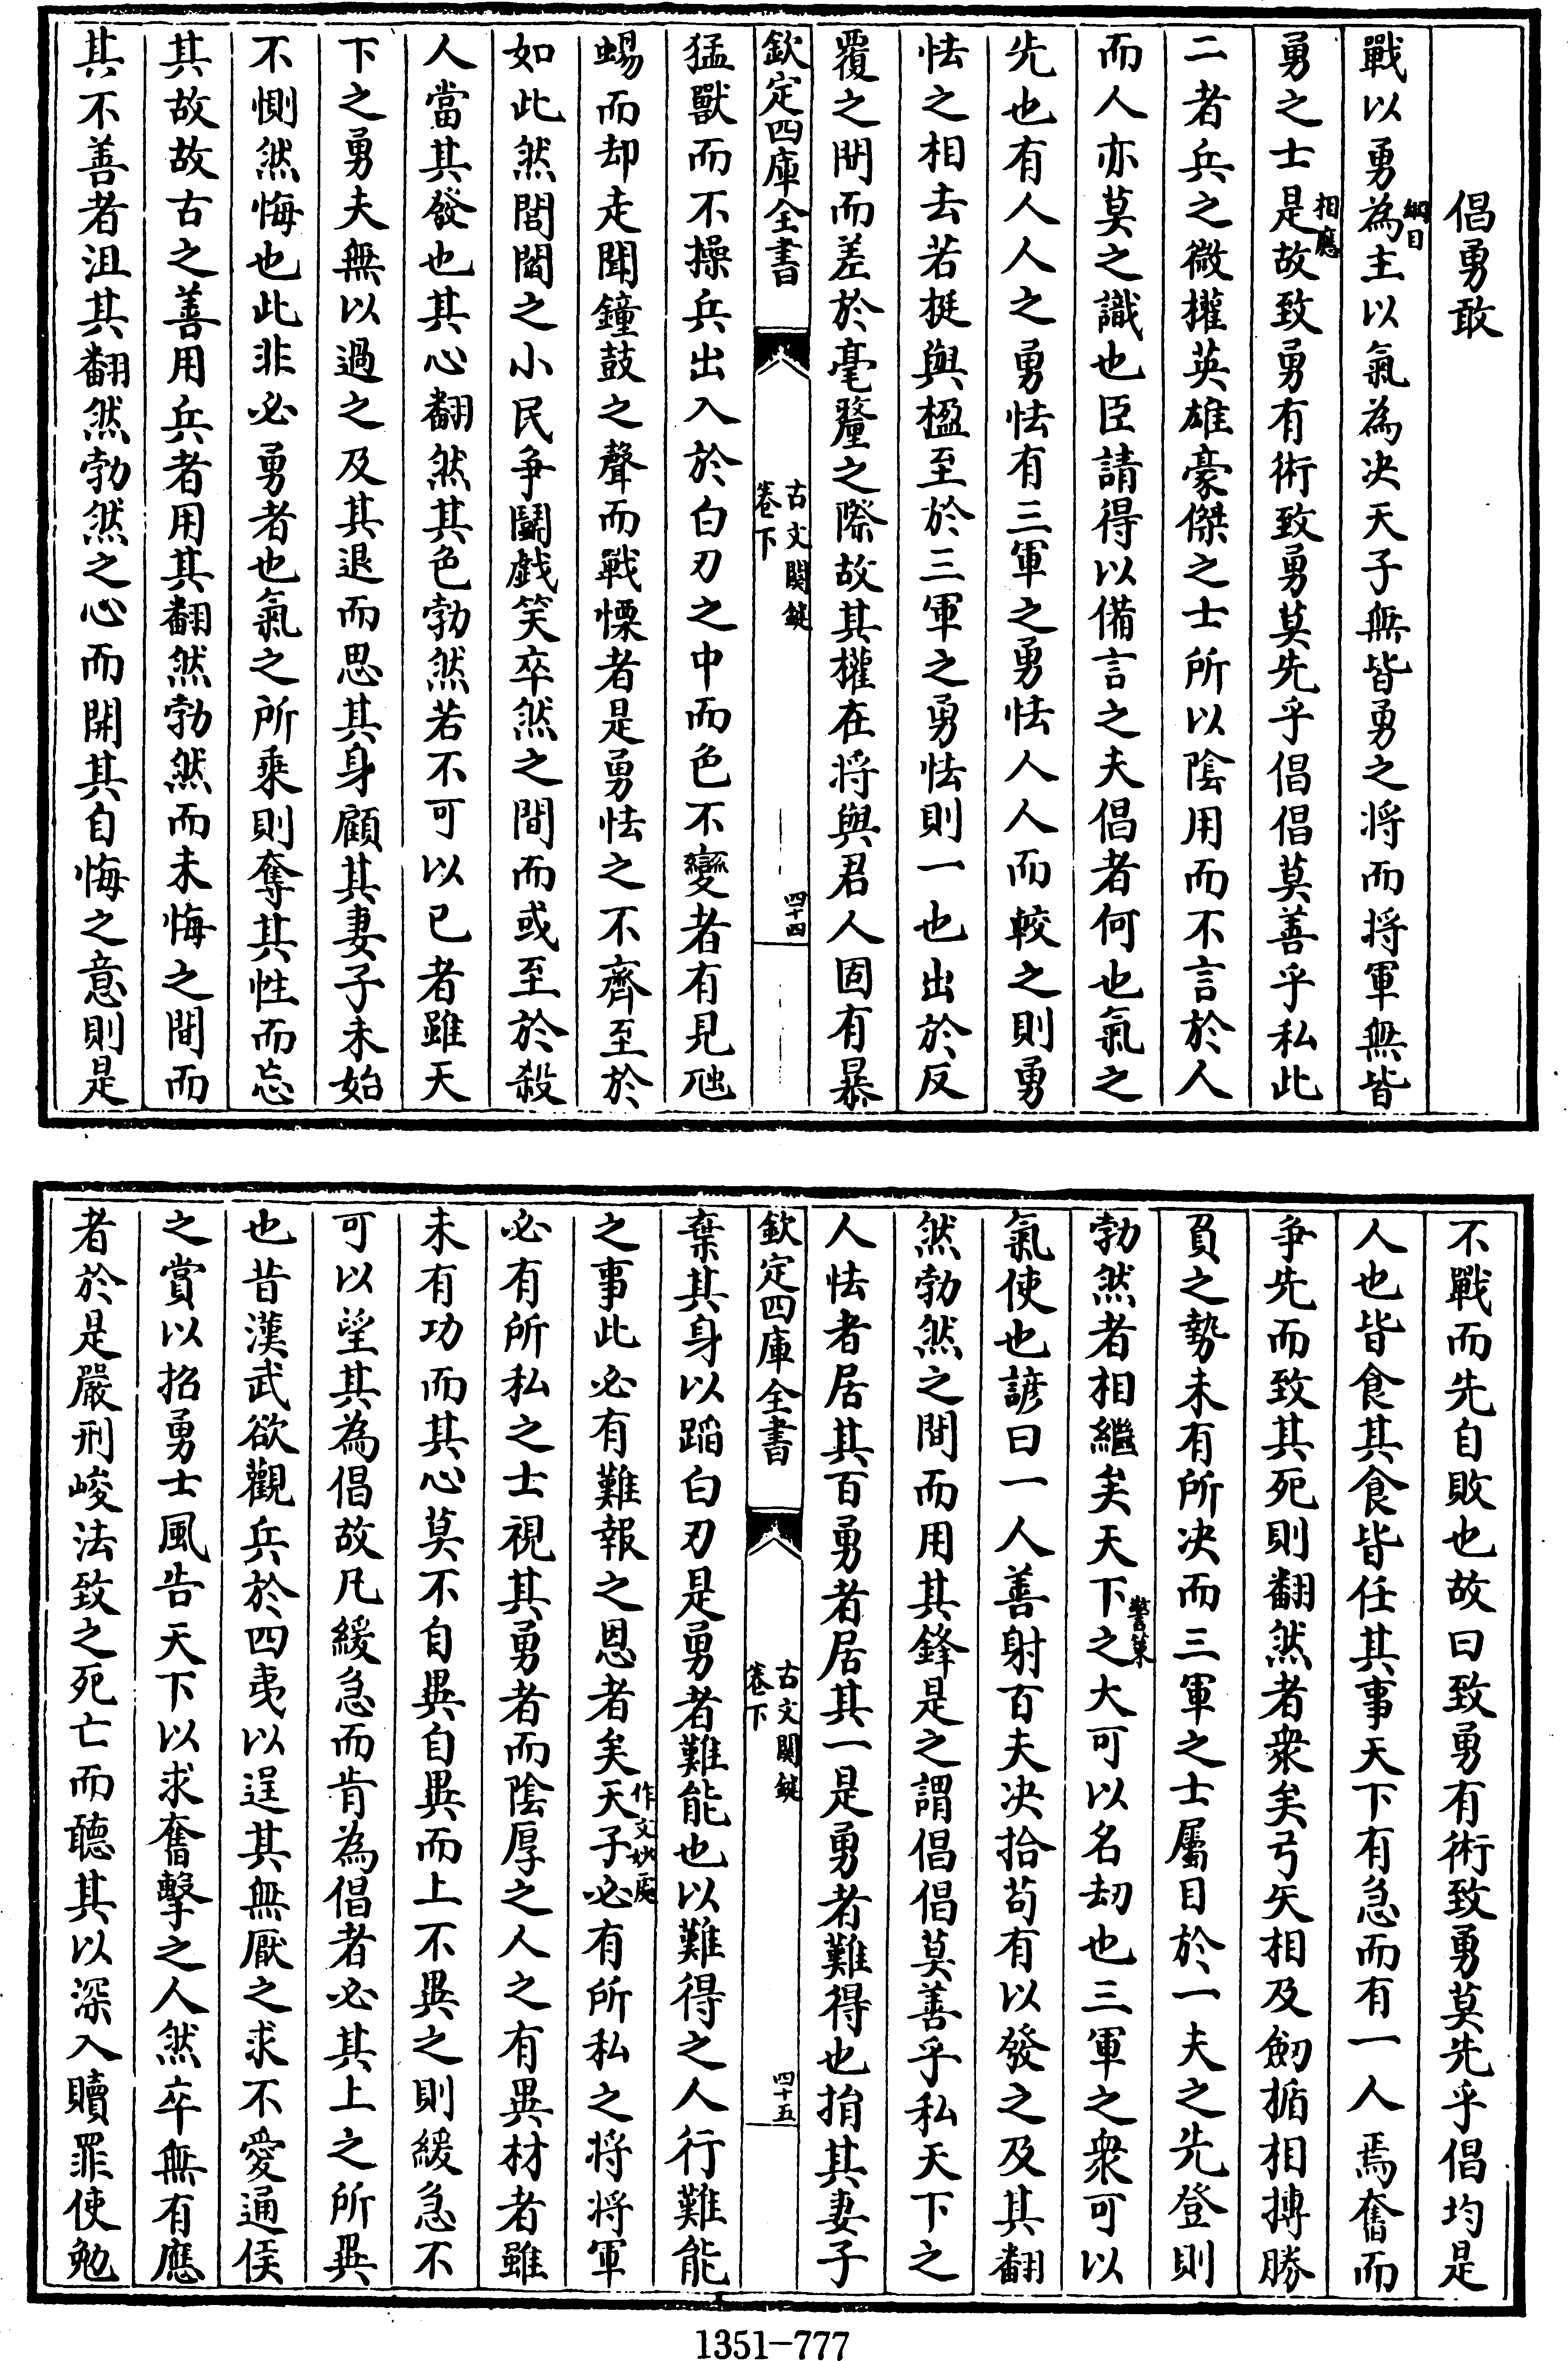 倡勇敢
戰以勇為主以氣為决天子無皆勇之将而将軍無皆
綱目
勇之士是故致勇有術致勇莫先乎倡倡莫善乎私此
相應
二者兵之微權英雄豪傑之士所以陰用而不言於人
而人亦莫之識也臣請得以備言之夫倡者何也氣之
先也有人人之勇怯有三軍之勇怯人人而較之則勇
怯之相去若梃與楹至於三軍之勇怯則一也出於反
覆之間而差於毫釐之際故其權在将與君人固有暴
欽定四庫全書
古文関鍵
卷下
四十四
猛獸而不操兵出入於白刃之中而色不變者有見虺
蜴而却走聞鐘鼓之聲而戰慄者是勇怯之不齊至於
如此然閭閻之小民争鬭戯笑卒然之間而或至於殺
人當其發也其心翻然其色勃然若不可以已者雖天
下之勇夫無以過之及其退而思其身顧其妻子未始
不惻然悔也此非必勇者也氣之所乘則奪其性而忘
其故故古之善用兵者用其翻然勃然而未悔之間而
其不善者沮其翻然勃然之心而開其自悔之意則是
不戰而先自敗也故曰致勇有術致勇莫先乎倡均是
人也皆食其食皆任其事天下有急而有一人焉奮而
争先而致其死則翻然者衆矣弓矢相及劒楯相搏勝
負之勢未有所决而三軍之士屬目於一夫之先登則
勃然者相繼矣天下之大可以名刼也三軍之衆可以
警策
氣使也諺曰一人善射百夫决拾苟有以發之及其翻
然勃然之間而用其鋒是之謂倡倡莫善乎私天下之
人怯者居其百勇者居其一是勇者難得也捐其妻子
欽定四庫全書
古文関鍵
卷下
四十五
棄其身以蹈白刃是勇者難能也以難得之人行難能
之事此必有難報之恩者矣天子必有所私之将将軍
作文妙處
必有所私之士視其勇者而陰厚之人之有異材者雖
未有功而其心莫不自異自異而上不異之則緩急不
可以望其為倡故凡緩急而肯為倡者必其上之所異
也昔漢武欲觀兵於四夷以逞其無厭之求不愛通侯
之賞以招勇士風告天下以求奮擊之人然卒無有應
者於是嚴刑峻法致之死亡而聽其以深入贖罪使勉
1351-777